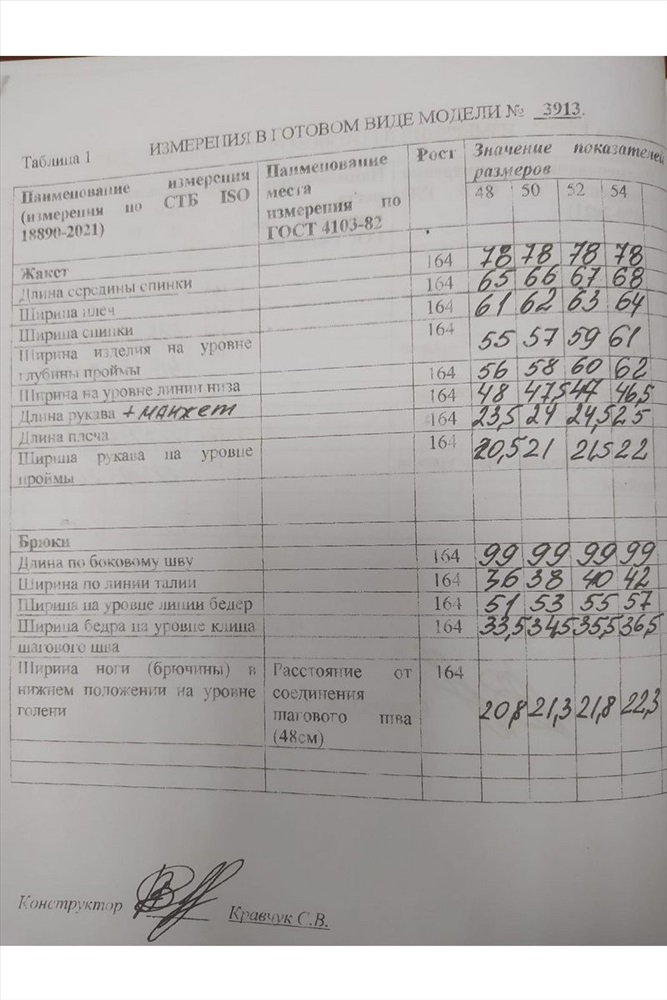 ИЗМЕРЕНИЯ В ГОТОВОМ ВИДЕ МОДЕЛИ № 3913.
Таблица 1
Наименование измерения (измерения по СТБ ISO 18890-2021) Наименование места измерения по ГОСТ 4103-82 Рост Значение показателей размеров
48 50 52 54
Жакет
Длина середины спинки 164 78 78 78 78
Ширина плеч 164 65 66 67 68
Ширина спинки 164 61 62 63 64
Ширина изделия на уровне глубины проймы 164 55 57 59 61
Ширина на уровне линии низа 164 56 58 60 62
Длина рукава + манжет 164 48 47,5 47 46,5
Длина плеча 164 23,5 24 24,5 25
Ширина рукава на уровне проймы 164 20,5 21 21,5 22
Брюки
Длина по боковому шву 164 99 99 99 99
Ширина по линии талии 164 36 38 40 42
Ширина на уровне линии бедер 164 51 53 55 57
Ширина бедра на уровне клина шагового шва 164 33,5 34,5 35,5 36,5
Ширина ноги (брючины) в нижнем положении на уровне голени Расстояние от соединения шагового шва (48см) 164 20,8 21,3 21,8 22,3
Конструктор Кравчук С.В.